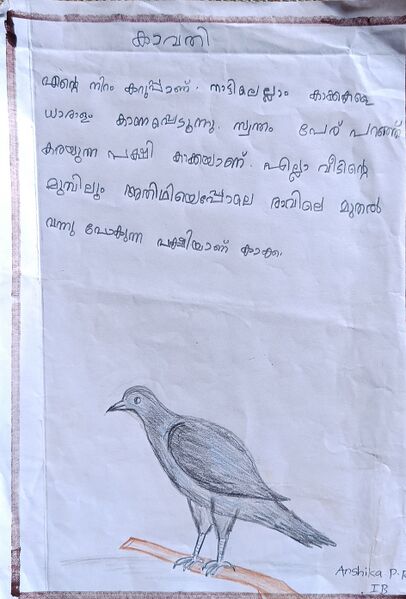 കാവതി
എന്റെ നിറം കറുപ്പാണ്. നാട്ടിലെല്ലാം കാക്കകളെ
ധാരാളം കാണപ്പെടുന്നു. സ്വന്തം പേര് പറഞ്ഞ്
കരയുന്ന പക്ഷി കാക്കയാണ്. എല്ലാ വീടിന്റെ
മുമ്പിലും അതിഥിയെപ്പോലെ രാവിലെ മുതൽ
വന്നു പോകുന്ന പക്ഷിയാണ് കാക്ക.
Anshika P.R
IB